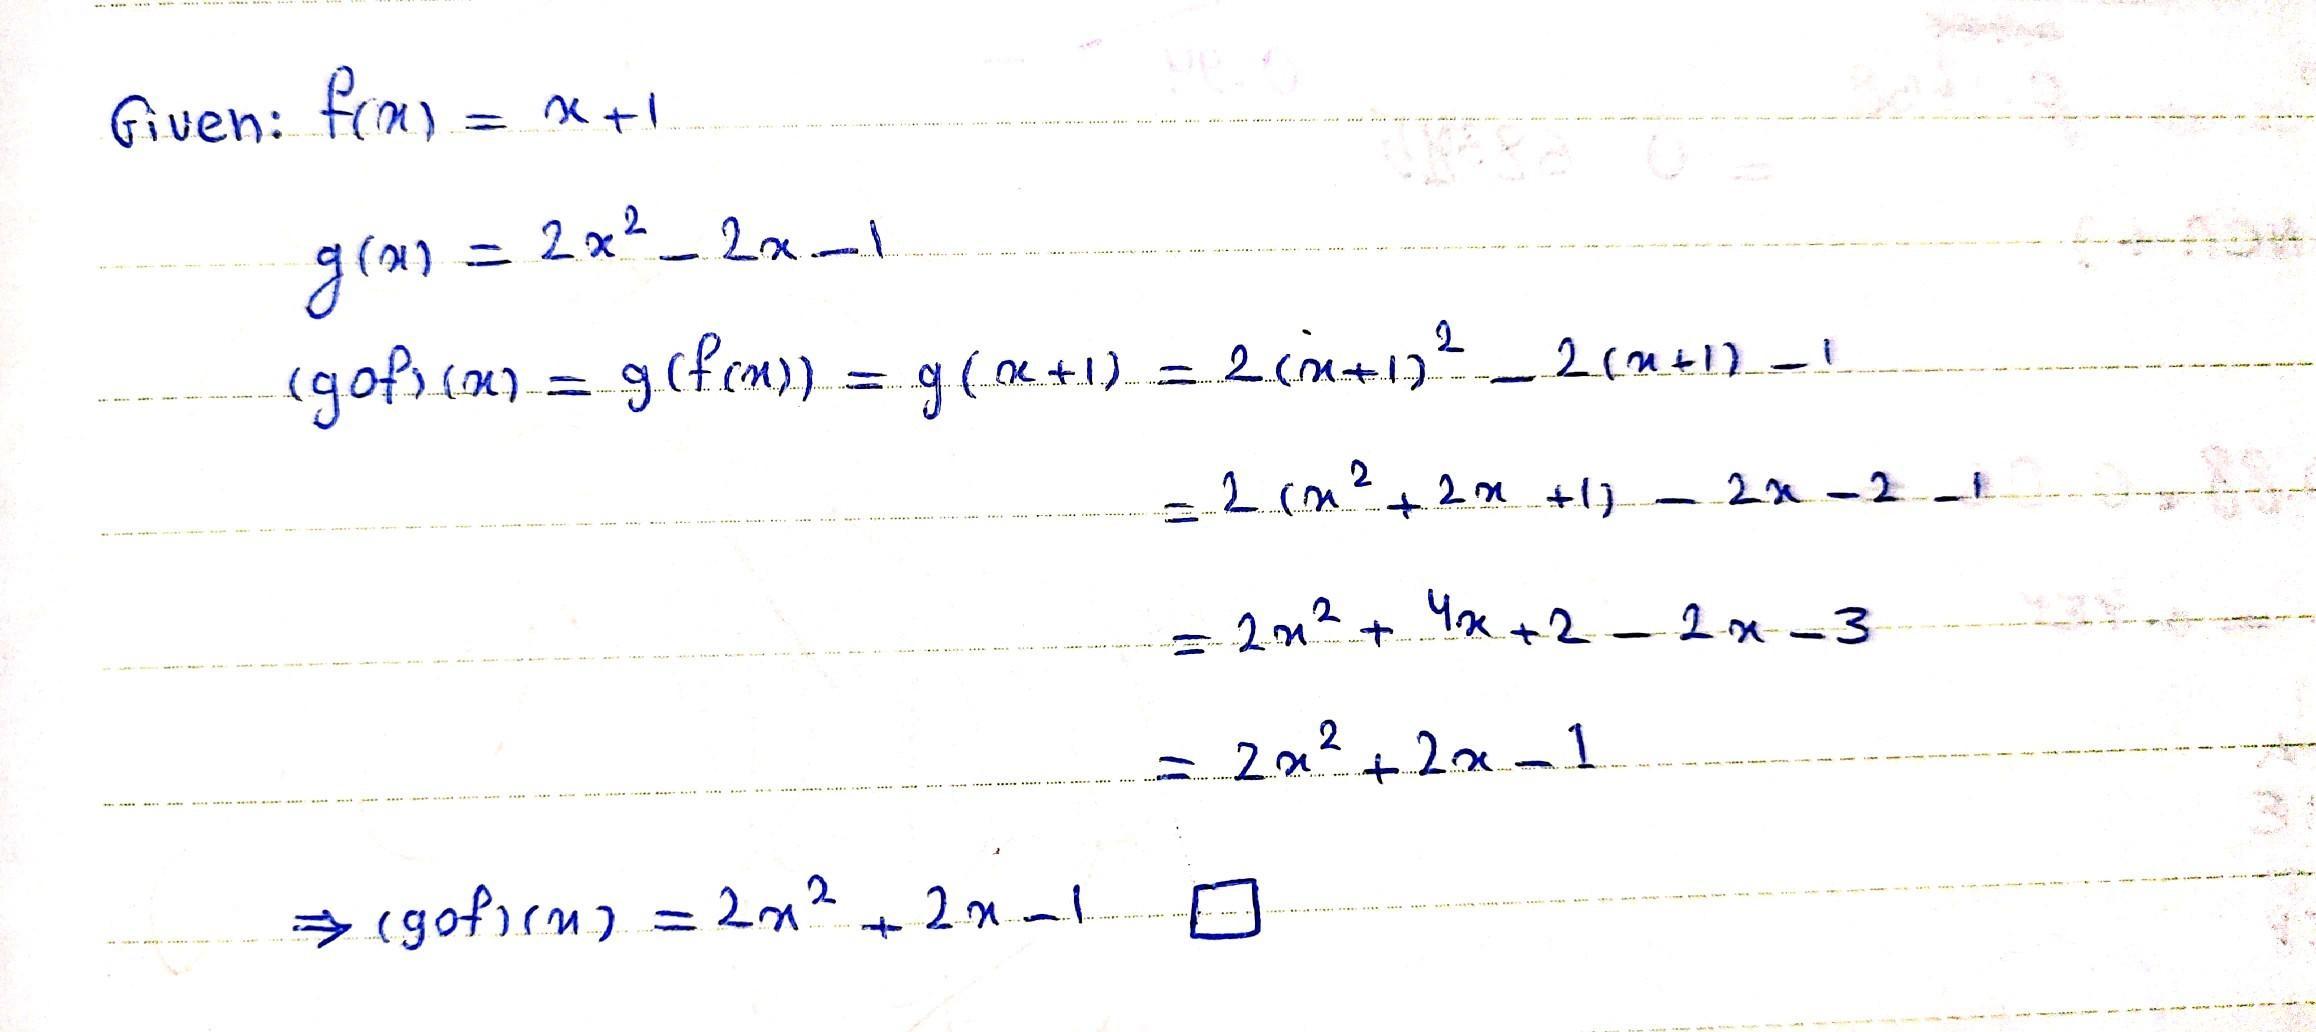 Given: f(x) = x+1
g(x) = 2x² - 2x - 1
(gof)(x) = g(f(x)) = g(x+1) = 2(x+1)² - 2(x+1) - 1
= 2(x² + 2x + 1) - 2x - 2 - 1
= 2x² + 4x + 2 - 2x - 3
= 2x² + 2x - 1
⇒ (gof)(x) = 2x² + 2x - 1 □